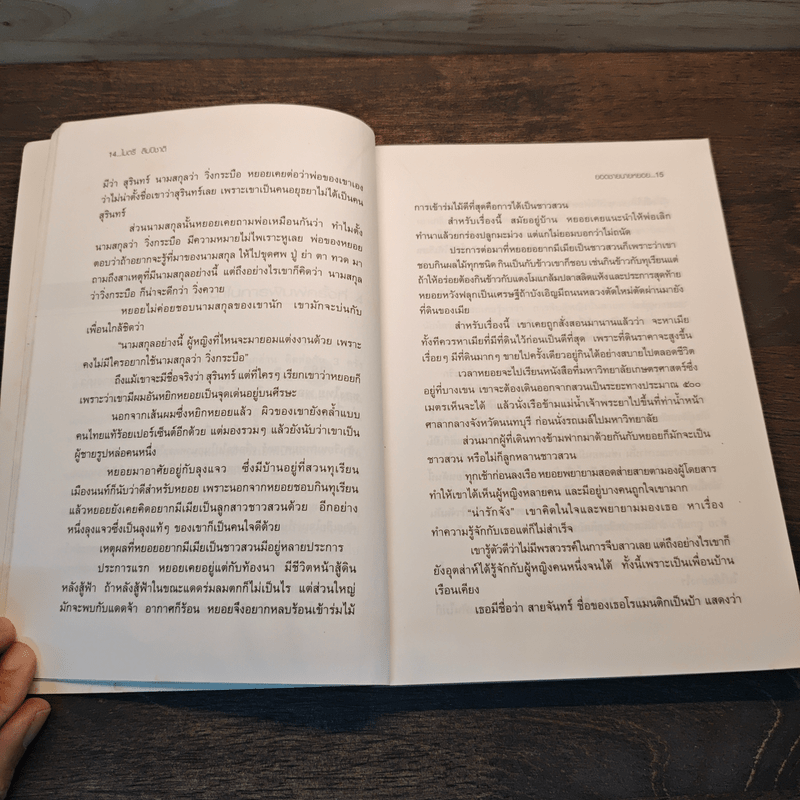 14...ไมตรี ลิมปิชาติ
มีว่า สุรินทร์ นามสกุลว่า วิ่งกระบือ หยอยเคยต่อว่าพ่อของเขาเอง
ว่าไม่น่าตั้งชื่อเขาว่าสุรินทร์เลย เพราะเขาเป็นคนอยุธยาไม่ได้เป็นคน
สุรินทร์
ส่วนนามสกุลนั้นหยอยเคยถามพ่อเหมือนกันว่า ทำไมตั้ง
นามสกุลว่า วิ่งกระบือ มีความหมายไม่ไพเราะหูเลย พ่อของหยอย
ตอบว่าถ้าอยากจะรู้ที่มาของนามสกุล ให้ไปขุดศพ ปู่ ย่า ตา ทวด มา
ถามถึงสาเหตุที่มีนามสกุลอย่างนี้ แต่ถึงอย่างไรเขาก็คิดว่า นามสกุล
ว่าวิ่งกระบือ ก็น่าจะดีกว่า วิ่งควาย
หยอยไม่ค่อยชอบนามสกุลของเขานัก เขามักจะบ่นกับ
เพื่อนใกล้ชิดว่า
“นามสกุลอย่างนี้ ผู้หญิงที่ไหนจะมายอมแต่งงานด้วย เพราะ
คงไม่มีใครอยากใช้นามสกุลว่า วิ่งกระบือ”
ถึงแม้เขาจะมีชื่อจริงว่า สุรินทร์ แต่ที่ใครๆ เรียกเขาว่าหยอยก็
เพราะว่าเขามีผมอันหยิกหยอยเป็นจุดเด่นอยู่บนศีรษะ
นอกจากเส้นผมซึ่งหยิกหยอยแล้ว ผิวของเขายังคล้ำแบบ
คนไทยแท้ร้อยเปอร์เซ็นต์อีกด้วย แต่มองรวมๆ แล้วยังนับว่าเขาเป็น
ผู้ชายรูปหล่อคนหนึ่ง
หยอยมาอาศัยอยู่กับลุงแจว ซึ่งมีบ้านอยู่ที่สวนทุเรียน
เมืองนนท์ก็นับว่าดีสำหรับหยอย เพราะนอกจากหยอยชอบกินทุเรียน
แล้วหยอยยังเคยคิดอยากมีเมียเป็นลูกสาวชาวสวนด้วย อีกอย่าง
หนึ่งลุงแจวซึ่งเป็นลุงแท้ๆ ของเขาก็เป็นคนใจดีด้วย
เหตุผลที่หยอยอยากมีเมียเป็นชาวสวนมีอยู่หลายประการ
ประการแรก หยอยเคยอยู่แต่กับท้องนา มีชีวิตหน้าสู้ดิน
หลังสู้ฟ้า ถ้าหลังสู้ฟ้าในขณะแดดร่มลมตกก็ไม่เป็นไร แต่ส่วนใหญ่
มักจะพบกับแดดจ้า อากาศก็ร้อน หยอยจึงอยากหลบร้อนเข้าร่มไม้
ยอดชายนายหยอย...15
การเข้าร่มไม้ดีที่สุดคือการได้เป็นชาวสวน
สำหรับเรื่องนี้ สมัยอยู่บ้าน หยอยเคยแนะนำให้พ่อเลิก
ทำนาแล้วยกร่องปลูกมะม่วง แต่แกไม่ยอมบอกว่าไม่ถนัด
ประการต่อมาที่หยอยอยากมีเมียเป็นชาวสวนก็เพราะว่าเขา
ชอบกินผลไม้ทุกชนิด กินเป็นกับข้าวเขาก็ชอบ เช่นกินข้าวกับทุเรียนแต่
ถ้าให้อร่อยต้องกินข้าวกับแตงโมแกล้มปลาสลิดแห้งและประการสุดท้าย
หยอยหวังฟลุกเป็นเศรษฐีถ้าบังเอิญมีถนนหลวงตัดใหม่ตัดผ่านมายัง
ที่ดินของเมีย
สำหรับเรื่องนี้ เขาเคยถูกสั่งสอนมานานแล้วว่า จะหาเมีย
ทั้งทีควรหาเมียที่มีที่ดินไว้ก่อนเป็นดีที่สุด เพราะที่ดินราคาจะสูงขึ้น
เรื่อยๆ มีที่ดินมากๆ ขายไปครั้งเดียวอยู่กินได้อย่างสบายไปตลอดชีวิต
เวลาหยอยจะไปเรียนหนังสือที่มหาวิทยาลัยเกษตรศาสตร์ซึ่ง
อยู่ที่บางเขน เขาจะต้องเดินออกจากสวนเป็นระยะทางประมาณ ๕๐๐
เมตรเห็นจะได้ แล้วนั่งเรือข้ามแม่น้ำเจ้าพระยาไปขึ้นที่ท่าน้ำหน้า
ศาลากลางจังหวัดนนทบุรี ก่อนนั่งรถเมล์ไปมหาวิทยาลัย
ส่วนมากผู้ที่เดินทางข้ามฟากมาด้วยกันกับหยอยก็มักจะเป็น
ชาวสวน หรือไม่ก็ลูกหลานชาวสวน
ทุกเช้าก่อนลงเรือ หยอยพยายามสอดส่ายสายตามองผู้โดยสาร
ทำให้เขาได้เห็นผู้หญิงหลายคน และมีอยู่บางคนถูกใจเขามาก
“น่ารักจัง” เขาคิดในใจและพยายามมองเธอ หาเรื่อง
ทำความรู้จักกับเธอแต่ก็ไม่สำเร็จ
เขารู้ตัวดีว่าไม่มีพรสวรรค์ในการจีบสาวเลย แต่ถึงอย่างไรเขาก็
ยังอุตส่าห์ได้รู้จักกับผู้หญิงคนหนึ่งจนได้ ทั้งนี้เพราะเป็นเพื่อนบ้าน
เรือนเคียง
เธอมีชื่อว่า สายจันทร์ ชื่อของเธอโรแมนติกเป็นบ้า แสดงว่า